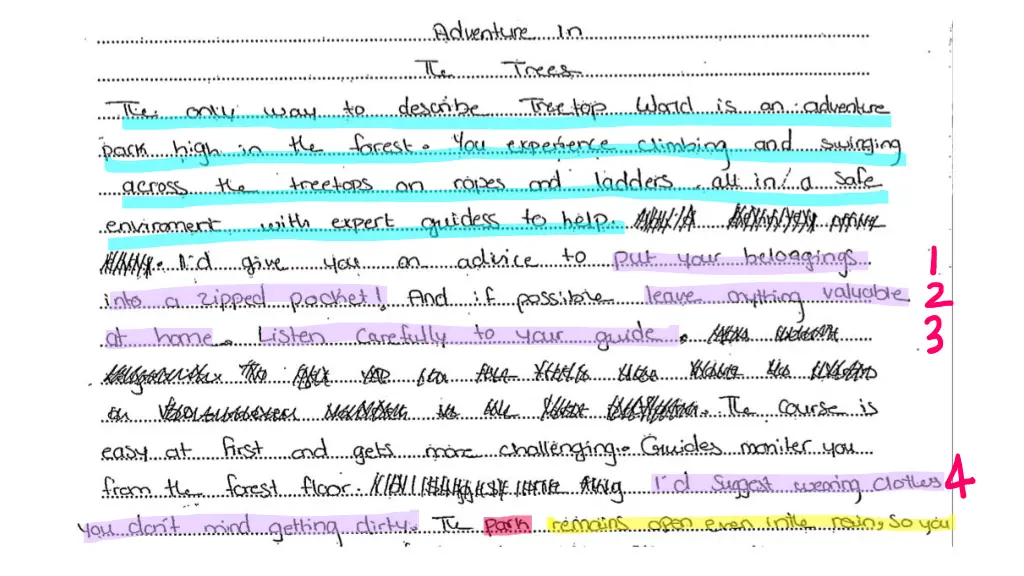 Adventure in
The Trees
The only way to describe Treetop World is an adventure
park high in the forest. You experience climbing and swinging
across the treetops on ropes and ladders all in a safe
enviroment with expert guidess to help.
I'd give you an advice to put your beloggings 1
into a zipped pocket! And if possible leave anything valuable 2
at home. Listen carefully to your guide. 3
The course is
easy at first and gets more challenging. Guides moniter you
from the forest floor. I'd suggest wearing clothes 4
you don't mind getting dirty. The park remains open even in the rain, so you